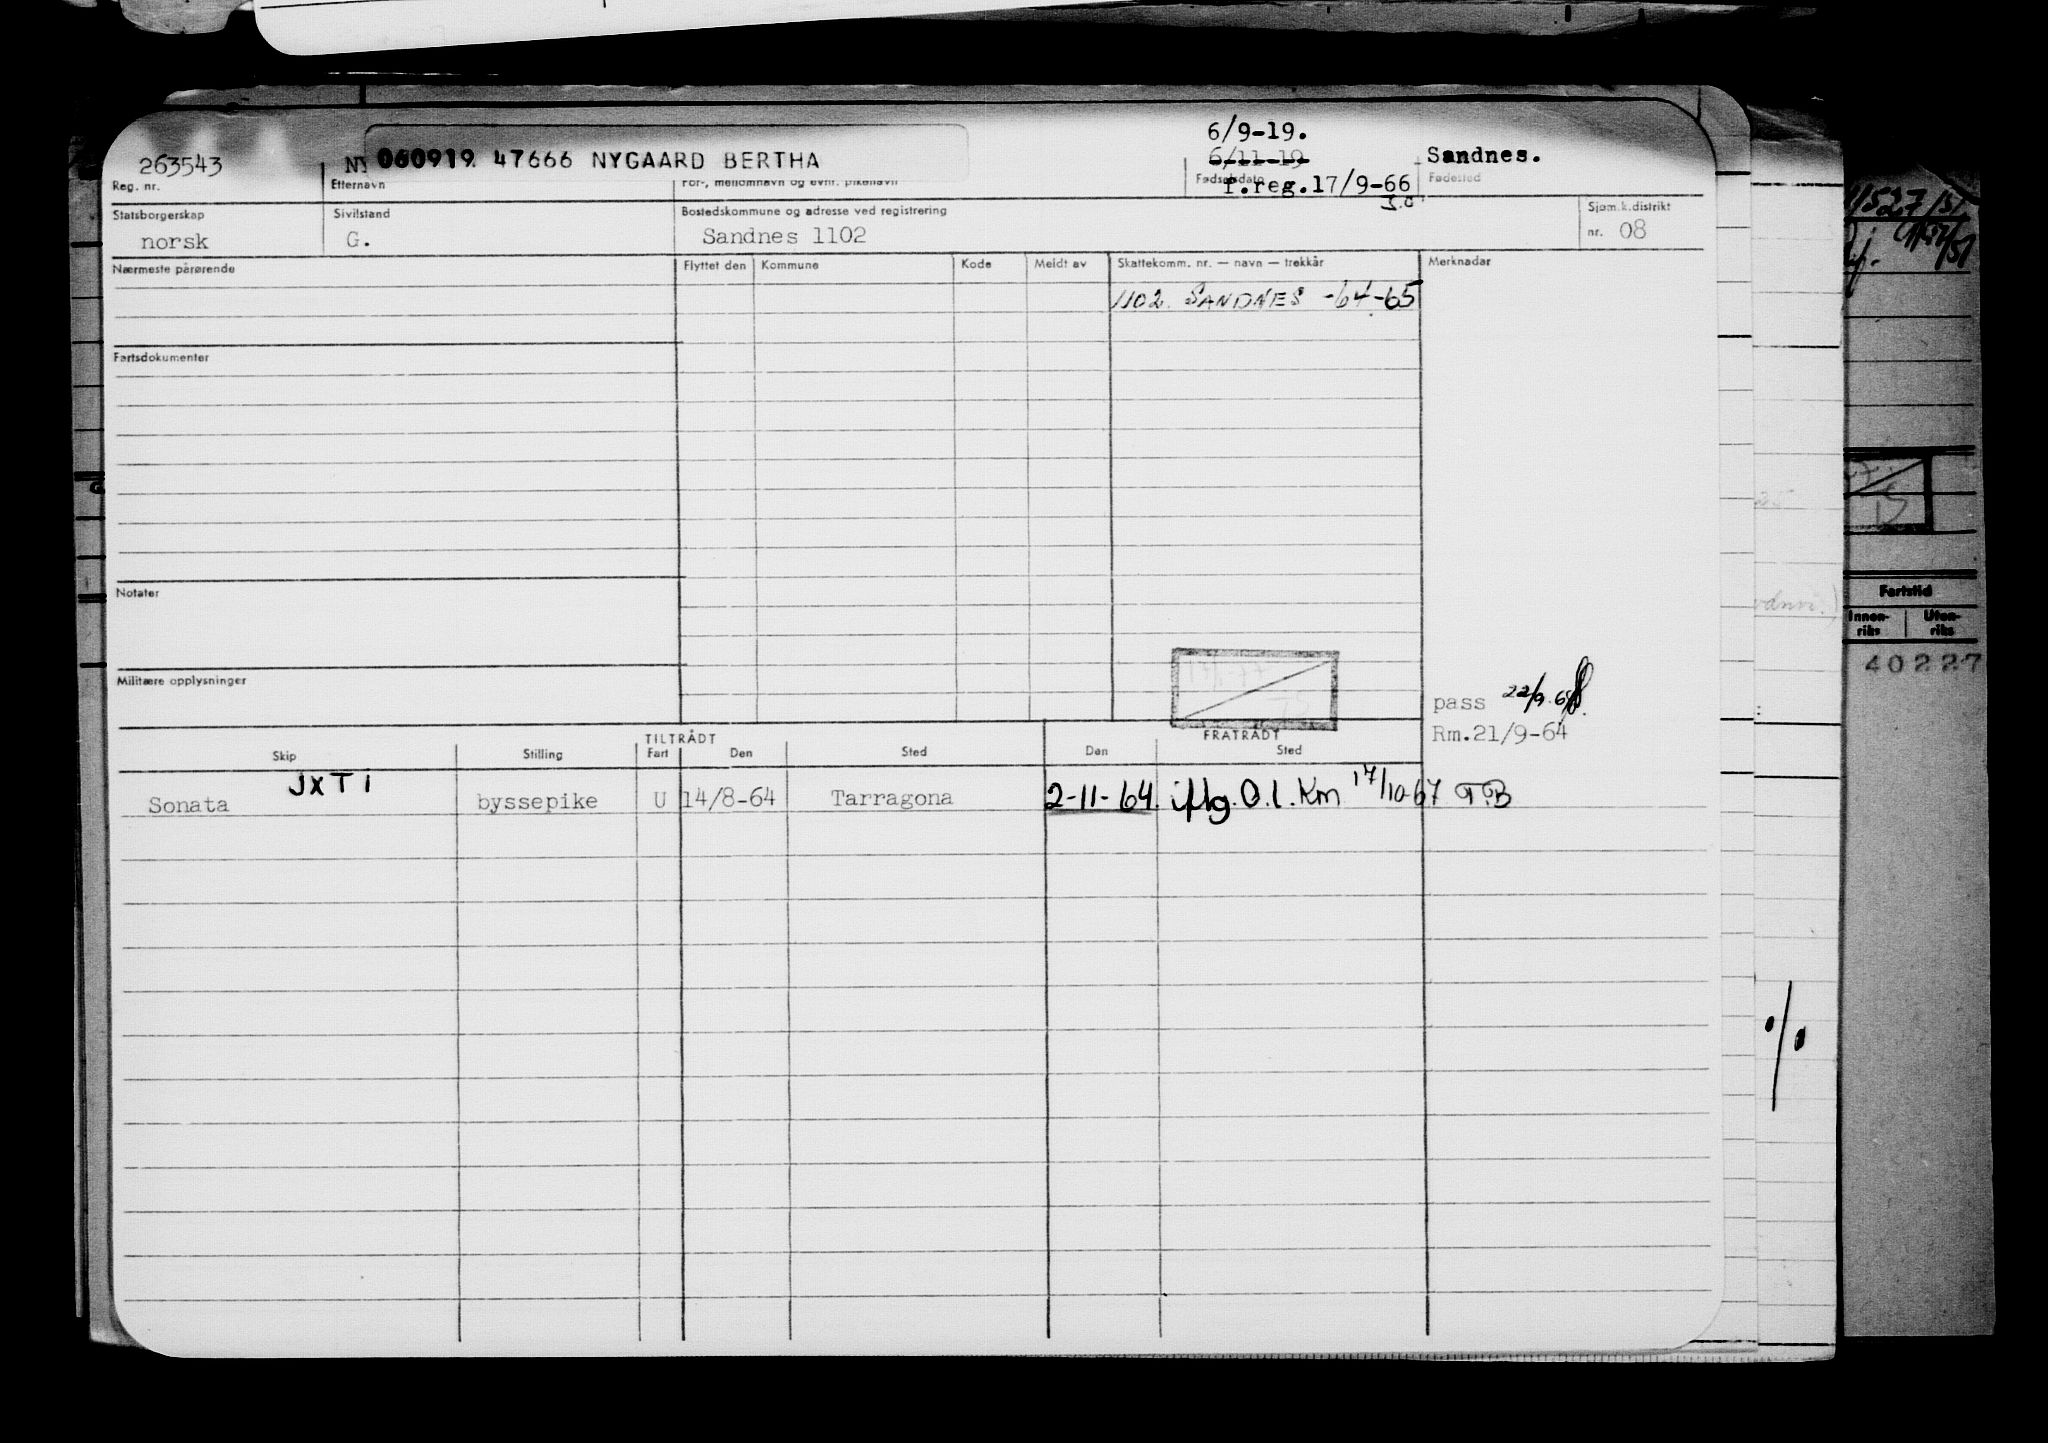 6/9-19.
263543 NY 060919 47666 NYGAARD BERTHA 6/11-19 Sandnes.
Reg. nr. Etternavn For-, mellomnavn og evnt. pikenavn Fødselsdato f.reg.17/9-66 Fødested
Statsborgerskap Sivilstand Bostedskommune og adresse ved registrering Sjøm.k.distrikt
norsk G. Sandnes 1102 nr. 08
Nærmeste pårørende Flyttet den Kommune Kode Meldt av Skattekomm. nr. — navn — trekkår Merknader
1102. SANDNES -64-65
Fartsdokumenter
Notater
Militære opplysninger
pass 22/9
Rm.21/9-64
TILTRÅDT FRATRÅDT
Skip Stilling Fart Den Sted Den Sted
JXTI
Sonata byssepike U 14/8-64 Tarragona 2-11-64. iflg. O.l. Km 17/10-67 T.B
Fartstid
Innen-riks Uten-riks
40227